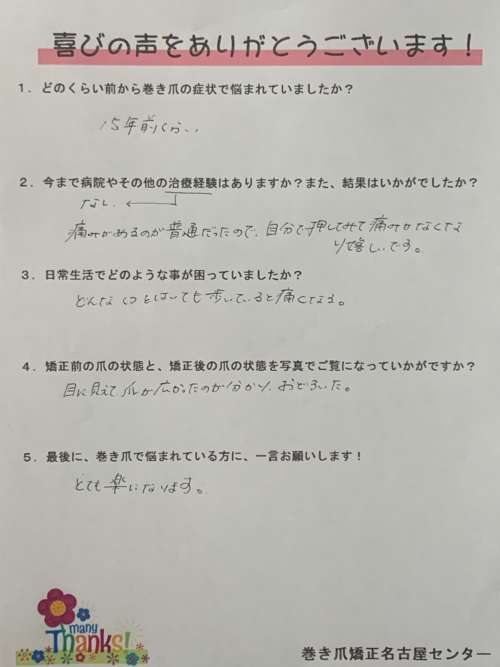 喜びの声をありがとうございます!
1．どのくらい前から巻き爪の症状で悩まれていましたか？
15年前くらい
2．今まで病院やその他の治療経験はありますか？また、結果はいかがでしたか？
なし、
痛みがあるのが普通だったので、自分で押してみて痛みがなくな
り嬉しいです。
3．日常生活でどのような事が困っていましたか？
どんなくつをはいても歩いていると痛くなる。
4．矯正前の爪の状態と、矯正後の爪の状態を写真でご覧になっていかがですか？
目に見えて、爪が広がったのが分かり、おどろいた。
5．最後に、巻き爪で悩まれている方に、一言お願いします！
とても楽になります。
many
Thanks!
巻き爪矯正名古屋センター